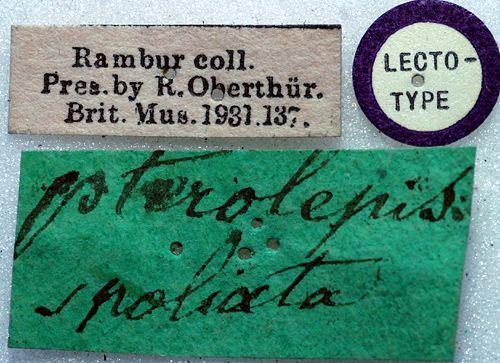 Rambur coll.
Pres. by R. Oberthür.
Brit. Mus. 1931.137.
LECTO-
TYPE
pterolepis.
spoliata